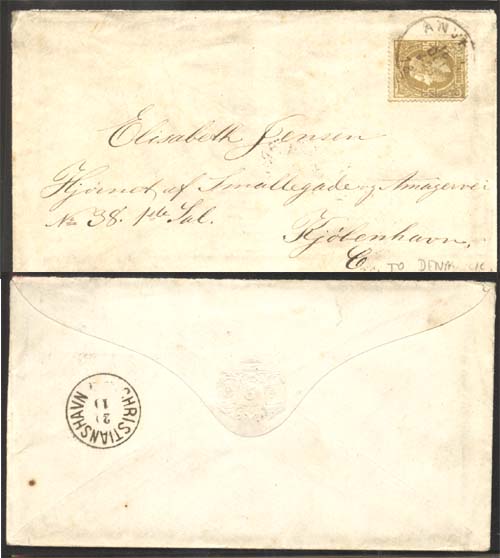 ANV
Elisabeth Jensen
Hjørnet af Smallegade og Amagervei
No 38. 1ste Sal.
Kjøbenhavn.
C.
TO DENM
CHRISTIANSHAVN